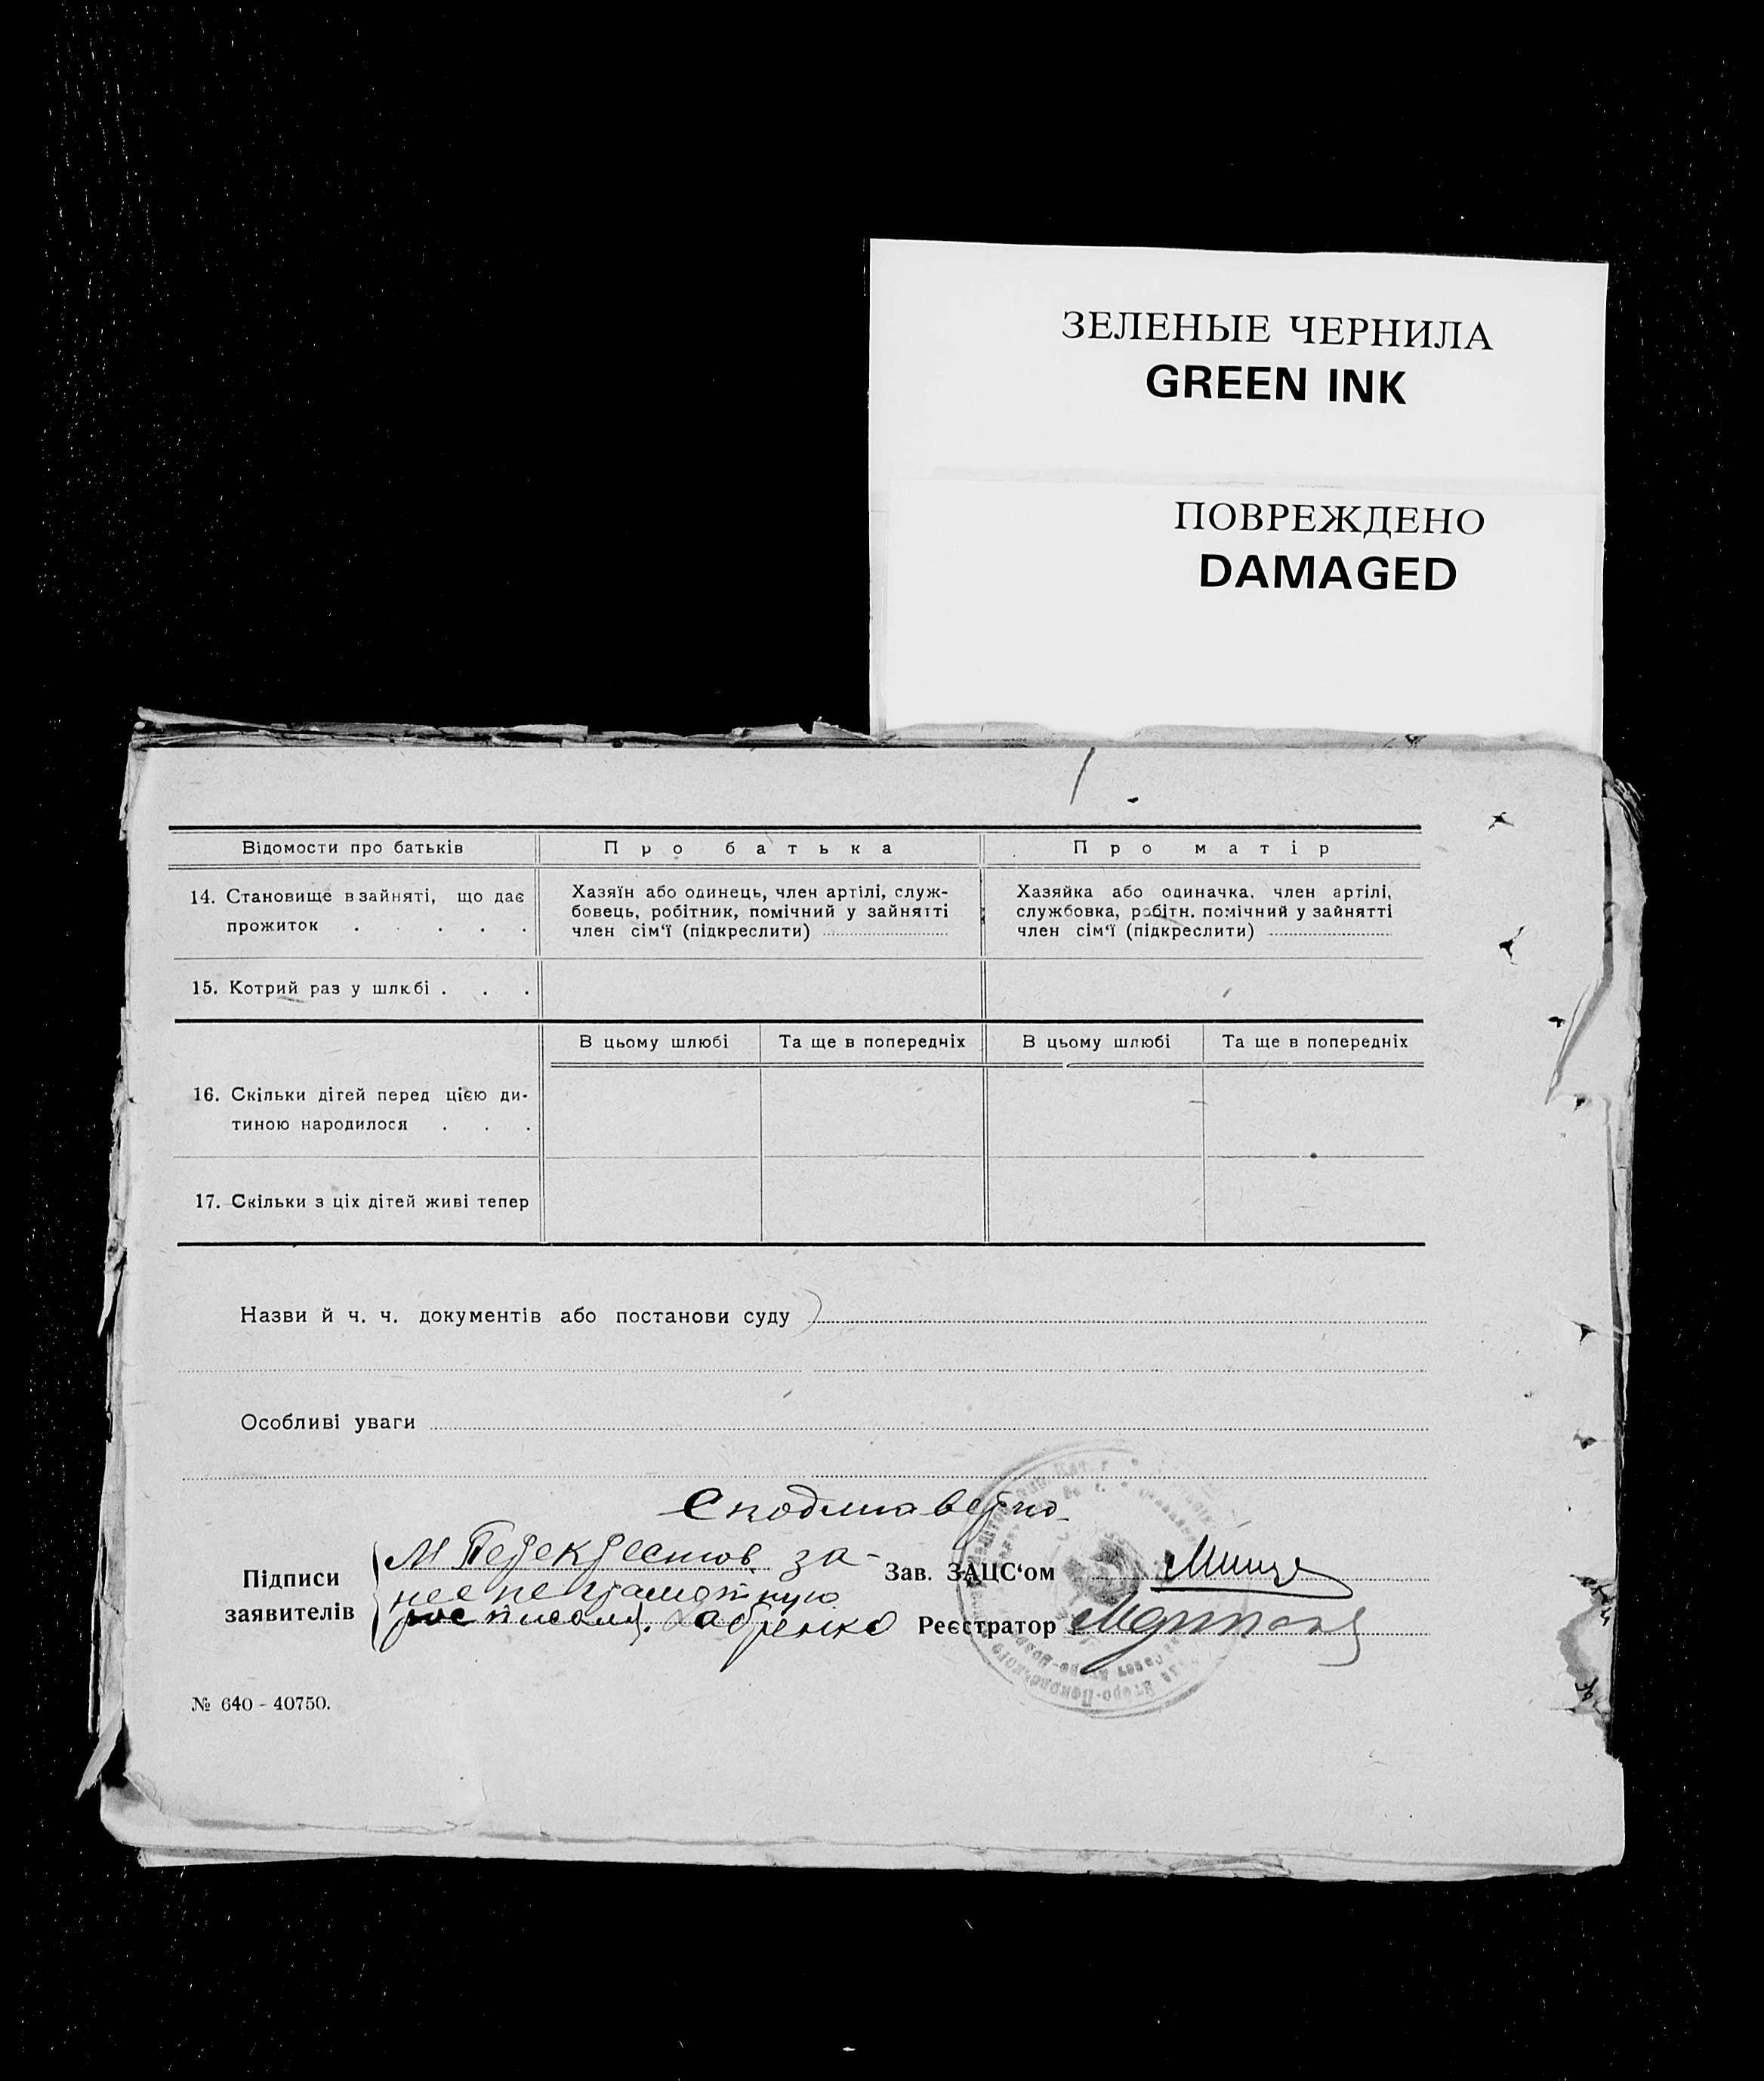 ЗЕЛЕНЫЕ ЧЕРНИЛА
GREEN INK
ПОВРЕЖДЕНО
DAMAGED
Відомости про батьків
Про батька
Про матір
14. Становище в зайняті, що дає
прожиток . . . . .
Хазяїн або одинець, член артілі, служ-
бовець, робітник, помічний у зайнятті
член сім'ї (підкреслити)
Хазяйка або одиначка, член артілі,
службовка, робітн. помічний у зайнятті
член сім'ї (підкреслити)
15. Котрий раз у шлюбі . . .
В цьому шлюбі
Та ще в попередніх
В цьому шлюбі
Та ще в попередніх
16. Скільки дітей перед цією ди-
тиною народилося . . .
17. Скільки з ціх дітей живі тепер
Назви й ч. ч. документів або постанови суду
Особливі уваги
верно
Підписи
заявителів
М Перекрестов за-
нее неграмотную
росписался
Зав. ЗАЦС'ом
Реєстратор
№ 640 - 40750.